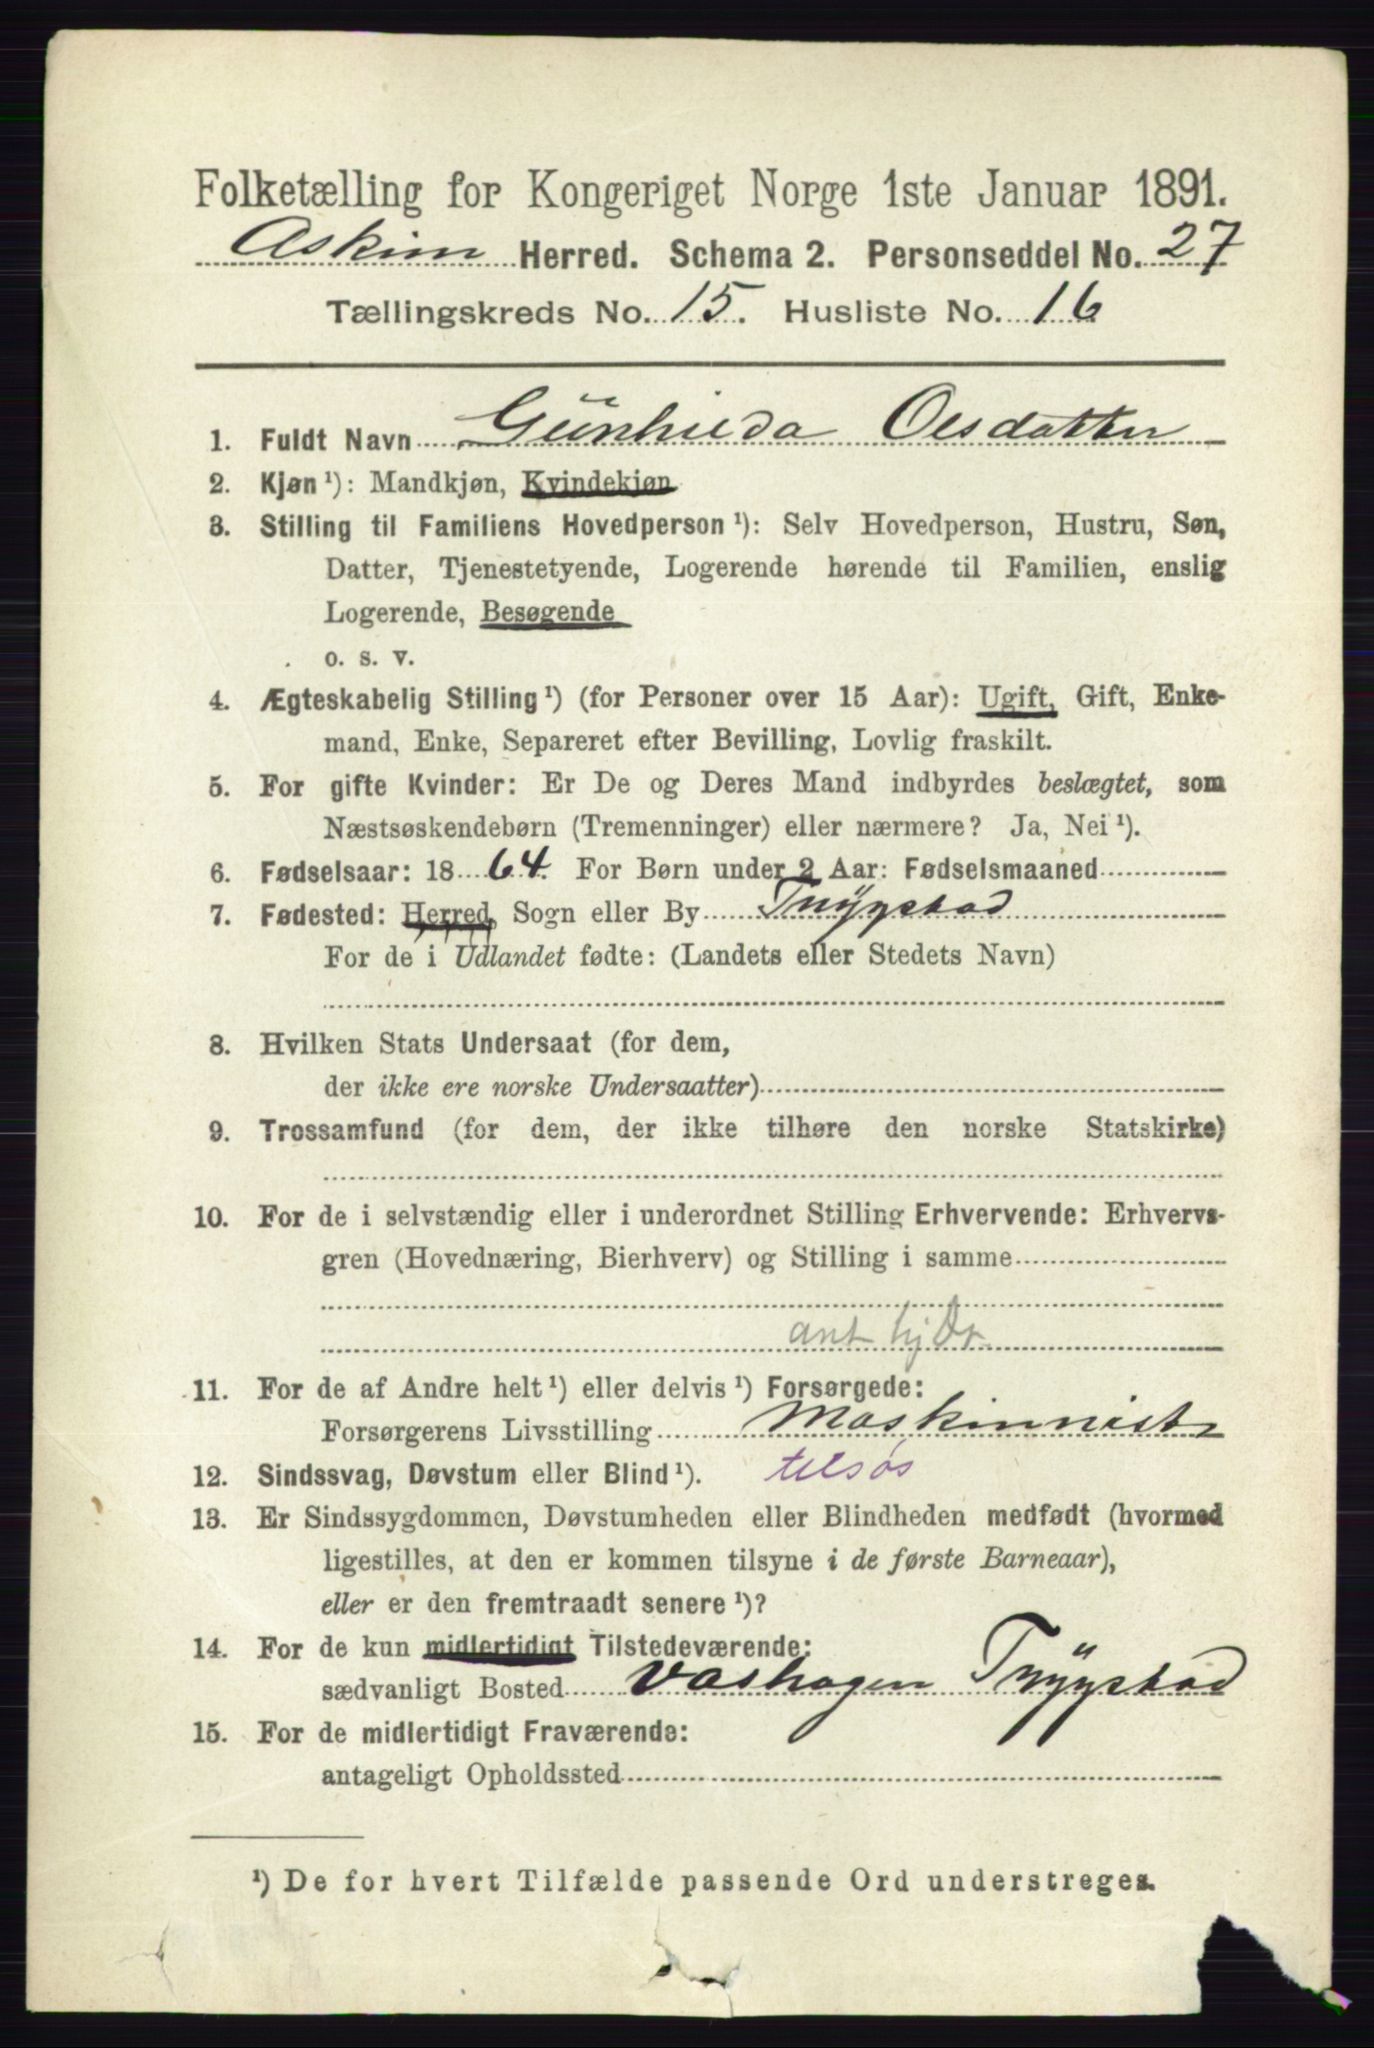 Folketælling for Kongeriget Norge 1ste Januar 1891.
Askim Herred. Schema 2. Personseddel No. 27
Tællingskreds No. 15. Husliste No. 16
1. Fuldt Navn Gunhilda Olsdatter
2. Kjøn ¹): Mandkjøn, Kvindekjøn
3. Stilling til Familiens Hovedperson ¹): Selv Hovedperson, Hustru, Søn,
Datter, Tjenestetyende, Logerende hørende til Familien, enslig
Logerende, Besøgende
o. s. v.
4. Ægteskabelig Stilling ¹) (for Personer over 15 Aar): Ugift, Gift, Enke-
mand, Enke, Separeret efter Bevilling, Lovlig fraskilt.
5. For gifte Kvinder: Er De og Deres Mand indbyrdes beslægtet, som
Næstsøskendebørn (Tremenninger) eller nærmere? Ja, Nei ¹).
6. Fødselsaar: 1864. For Børn under 2 Aar: Fødselsmaaned
7. Fødested: Herred, Sogn eller By Trygstad
For de i Udlandet fødte: (Landets eller Stedets Navn)
8. Hvilken Stats Undersaat (for dem,
der ikke ere norske Undersaatter)
9. Trossamfund (for dem, der ikke tilhøre den norske Statskirke)
10. For de i selvstændig eller i underordnet Stilling Erhvervende: Erhvervs-
gren (Hovednæring, Bierhverv) og Stilling i samme
ant hj Dr
11. For de af Andre helt ¹) eller delvis ¹) Forsørgede:
Forsørgerens Livsstilling Maskinnist
12. Sindssvag, Døvstum eller Blind ¹). tilsøs
13. Er Sindssygdommen, Døvstumheden eller Blindheden medfødt (hvormed
ligestilles, at den er kommen tilsyne i de første Barneaar),
eller er den fremtraadt senere ¹)?
14. For de kun midlertidigt Tilstedeværende:
sædvanligt Bosted Vashagen Trygstad
15. For de midlertidigt Fraværende:
antageligt Opholdssted
¹) De for hvert Tilfælde passende Ord understreges.